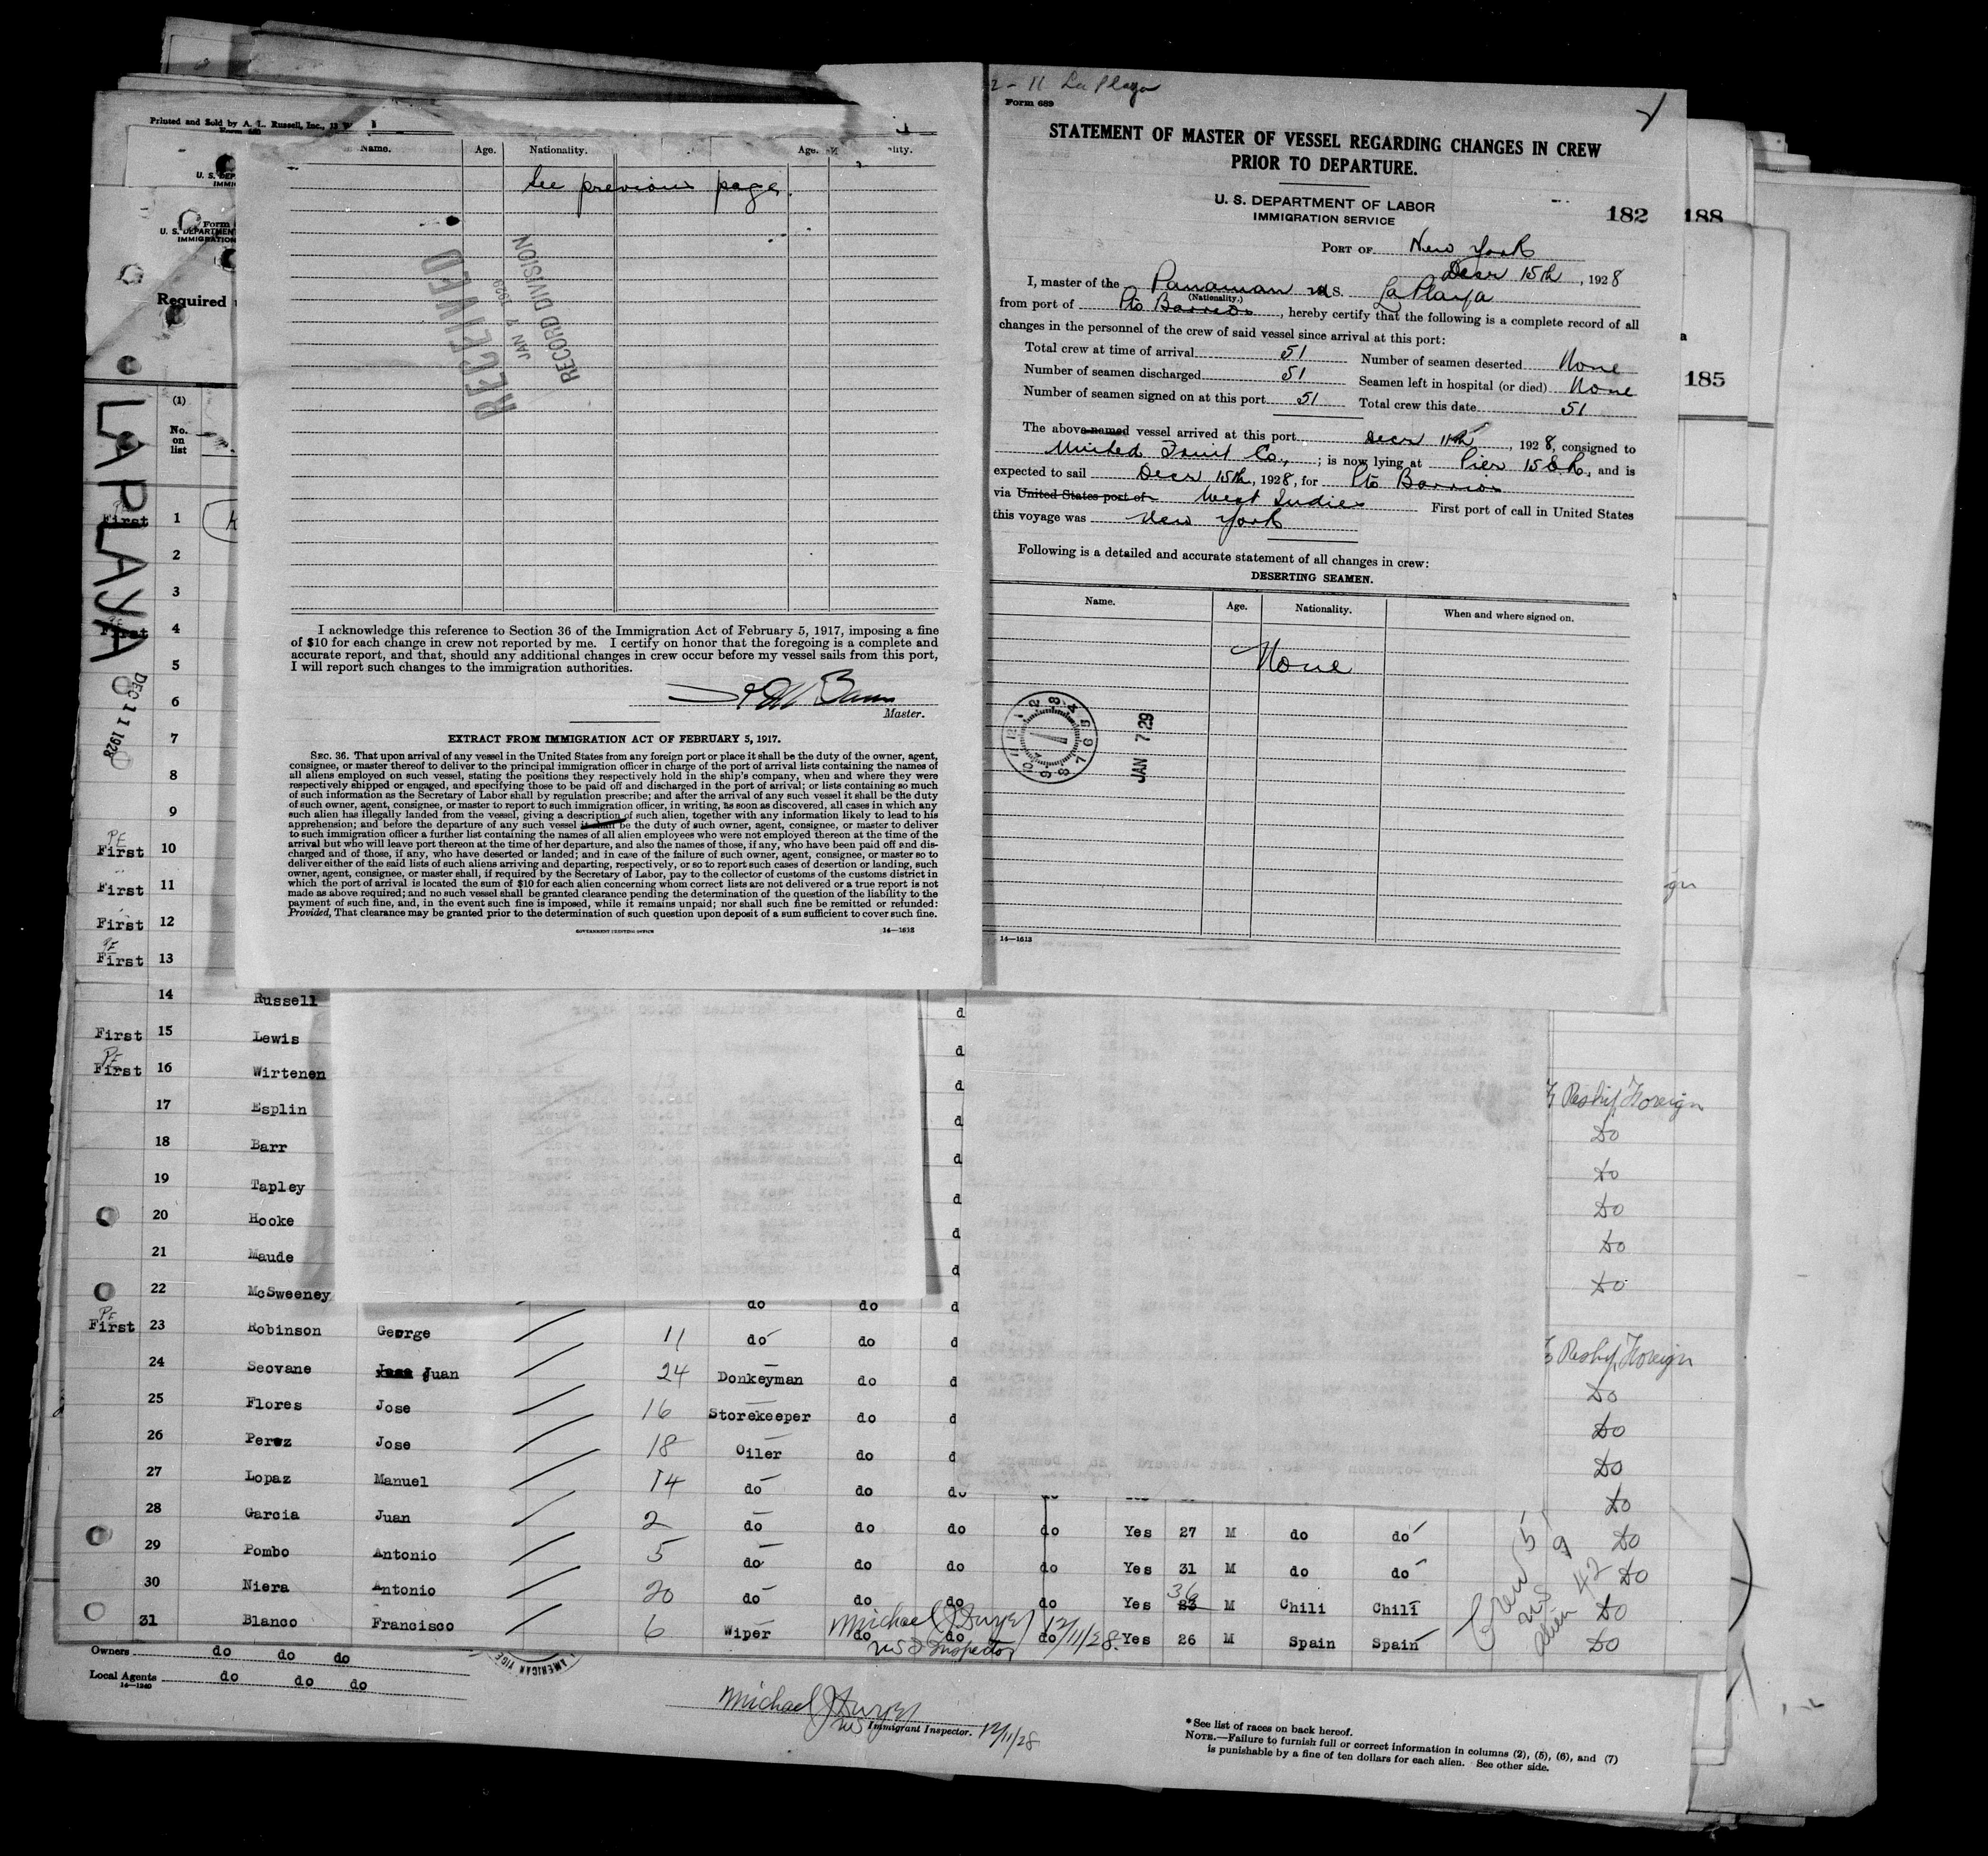 Printed and Sold by A. L. Russell, Inc.,
Name. Age. Nationality. Age.
See previous page.
RECEIVED
JAN 7 1929
RECORD DIVISION
I acknowledge this reference to Section 36 of the Immigration Act of February 5, 1917, imposing a fine
of $10 for each change in crew not reported by me. I certify on honor that the foregoing is a complete and
accurate report, and that, should any additional changes in crew occur before my vessel sails from this port,
I will report such changes to the immigration authorities.
Master.
EXTRACT FROM IMMIGRATION ACT OF FEBRUARY 5, 1917.
SEC. 36. That upon arrival of any vessel in the United States from any foreign port or place it shall be the duty of the owner, agent,
consignee, or master thereof to deliver to the principal immigration officer in charge of the port of arrival lists containing the names of
all aliens employed on such vessel, stating the positions they respectively hold in the ship's company, when and where they were
respectively shipped or engaged, and specifying those to be paid off and discharged in the port of arrival; or lists containing so much
of such information as the Secretary of Labor shall by regulation prescribe; and after the arrival of any such vessel it shall be the duty
of such owner, agent, consignee, or master to report to such immigration officer, in writing, as soon as discovered, all cases in which any
such alien has illegally landed from the vessel, giving a description of such alien, together with any information likely to lead to his
apprehension; and before the departure of any such vessel it shall be the duty of such owner, agent, consignee, or master to deliver
to such immigration officer a further list containing the names of all alien employees who were not employed thereon at the time of the
arrival but who will leave port thereon at the time of her departure, and also the names of those, if any, who have been paid off and dis-
charged and of those, if any, who have deserted or landed; and in case of the failure of such owner, agent, consignee, or master so to
deliver either of the said lists of such aliens arriving and departing, respectively, or so to report such cases of desertion or landing, such
owner, agent, consignee, or master shall, if required by the Secretary of Labor, pay to the collector of customs of the customs district in
which the port of arrival is located the sum of $10 for each alien concerning whom correct lists are not delivered or a true report is not
made as above required; and no such vessel shall be granted clearance pending the determination of the question of the liability to the
payment of such fine, and, in the event such fine is imposed, while it remains unpaid; nor shall such fine be remitted or refunded:
Provided, That clearance may be granted prior to the determination of such question upon deposit of a sum sufficient to cover such fine.
GOVERNMENT PRINTING OFFICE 14—1613
2-11 La Playa
Form 689
STATEMENT OF MASTER OF VESSEL REGARDING CHANGES IN CREW
PRIOR TO DEPARTURE.
U. S. DEPARTMENT OF LABOR
IMMIGRATION SERVICE
182 188
PORT OF New York
Decr 15th, 1928
I, master of the Panaman S. La Playa
(Nationality.)
from port of Pto Barrios, hereby certify that the following is a complete record of all
changes in the personnel of the crew of said vessel since arrival at this port:
Total crew at time of arrival 51 Number of seamen deserted None
Number of seamen discharged 51 Seamen left in hospital (or died) None
Number of seamen signed on at this port 51 Total crew this date 51
185
The above-named vessel arrived at this port Decr 11th, 1928, consigned to
United Fruit Co., ; is now lying at Pier 15 E.R., and is
expected to sail Decr 15th, 1928, for Pto Barrios
via United States port of West Indies First port of call in United States
this voyage was New York
Following is a detailed and accurate statement of all changes in crew:
DESERTING SEAMEN.
Name. Age. Nationality. When and where signed on.
None
JAN 7 29
14—1613
U. S. DEPARTMENT
IMMIGRATION
Required
LA PLAYA
DEC 11 1928
(1)
No.
on
list
First 1
2
3
First 4
5
6
7
8
9
PE
First 10
First 11
First 12
PE
First 13
14 Russell
First 15 Lewis
PE
First 16 Wirtenen
17 Esplin
18 Barr
19 Tapley
20 Hooke
21 Maude
22 McSweeney do do d
PE
First 23 Robinson George 11 do do d
24 Seovane Juan 24 Donkeyman do d
25 Flores Jose 16 Storekeeper do d
26 Perez Jose 18 Oiler do d
27 Lopaz Manuel 14 do do do
28 Garcia Juan 2 do do do do Yes 27 M do do Do
29 Pombo Antonio 5 do do do do Yes 31 M do do Do
30 Niera Antonio 20 do do do do Yes 23 36 M Chili Chili Do
31 Blanco Francisco 6 Wiper do do do Yes 26 M Spain Spain Do
Reship Foreign
Do
Do
Do
Do
Do
Reship Foreign
Do
Do
Do
Do
Crew 51
US 9
Alien 42
12/11/28
US Inspector
Owners do do do
Local Agents do do do
14—1240
Immigrant Inspector. 12/11/28
* See list of races on back hereof.
NOTE.—Failure to furnish full or correct information in columns (2), (5), (6), and (7)
is punishable by a fine of ten dollars for each alien. See other side.